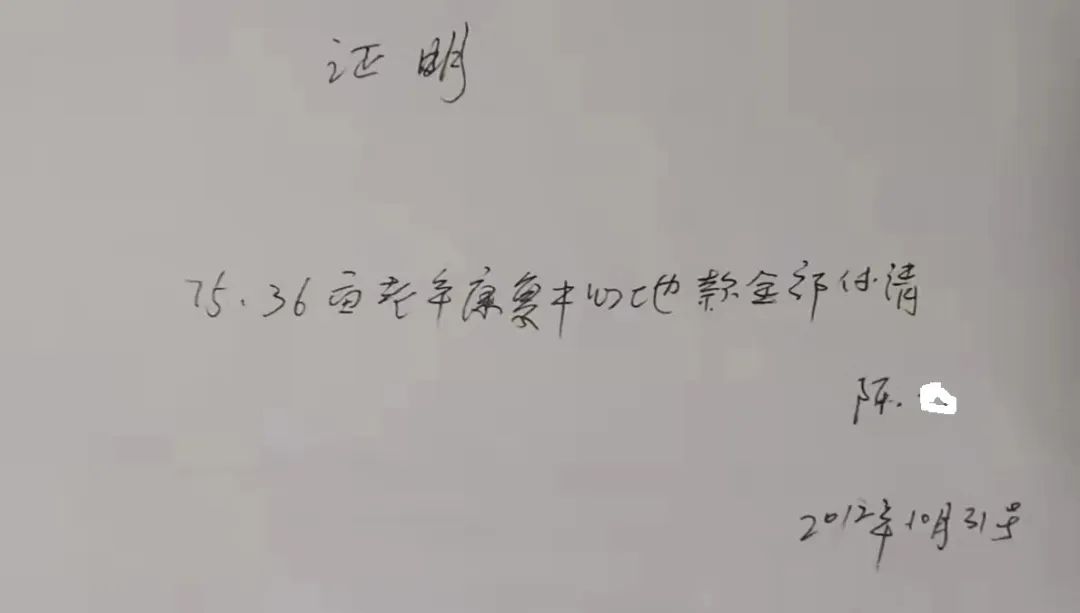 证明
75.36亩老年康复中心地款全部付清
陈.
2012年10月31号